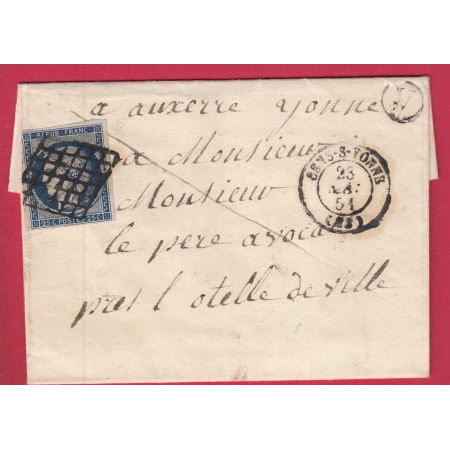 REPUB. FRANC.
25 C. POSTES 25 C.
a auxerre yonne
N
a Monsieur
Monsieur
le pere avoca
pres l otelle de ville
SENS-S-YONNE
23
51
(83)